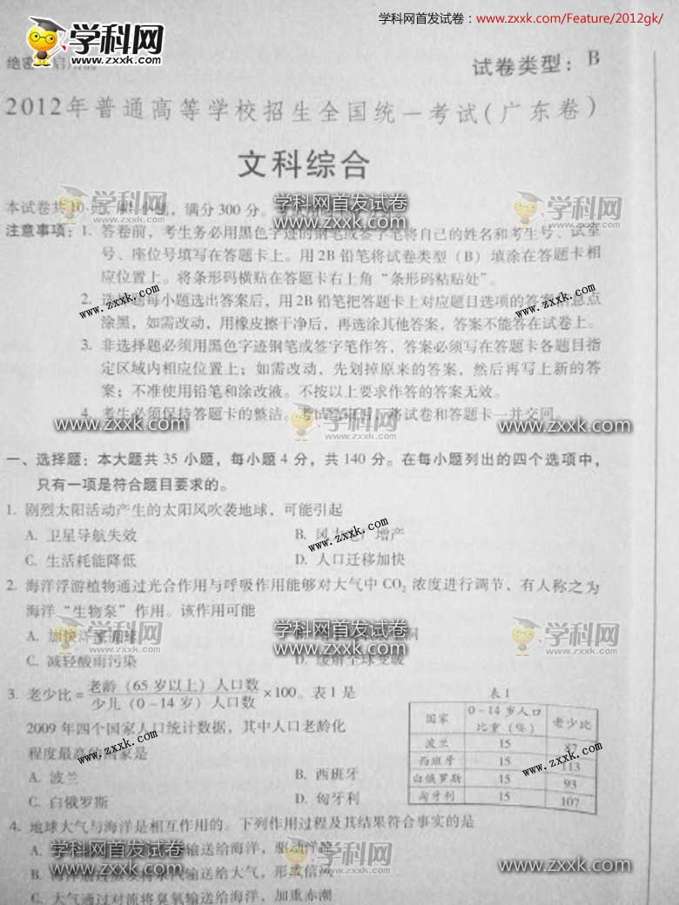 学科网首发试卷：www.zxxk.com/Feature/2012gk/
学科网
www.zxxk.com
绝密
试卷类型：B
2012年普通高等学校招生全国统一考试（广东卷）
文科综合
学科网
学科网首发试卷
www.zxxk.com
学科网
本试卷共10页，满分300分。
注意事项：1. 答卷前，考生务必用黑色字迹的钢笔或签字笔将自己的姓名和考生号、试室
号、座位号填写在答题卡上。用2B铅笔将试卷类型（B）填涂在答题卡相
应位置上。将条形码横贴在答题卡右上角“条形码粘贴处”
www.zxxk.com
2. 选择题每小题选出答案后，用2B铅笔把答题卡上对应题目选项的答案信息点
www.zxxk.com
涂黑，如需改动，用橡皮擦干净后，再选涂其他答案，答案不能答在试卷上。
3. 非选择题必须用黑色字迹钢笔或签字笔作答，答案必须写在答题卡各题目指
定区域内相应位置上；如需改动，先划掉原来的答案，然后再写上新的答
案；不准使用铅笔和涂改液。不按以上要求作答的答案无效。
4. 考生必须保持答题卡的整洁。考试结束后，将试卷和答题卡一并交回。
www.zxxk.com
学科网
www.zxxk.com
一、选择题：本大题共35小题，每小题4分，共140分。在每小题列出的四个选项中，
只有一项是符合题目要求的。
1. 剧烈太阳活动产生的太阳风吹袭地球，可能引起
A. 卫星导航失效
B. 风力电厂增产
www.zxxk.com
C. 生活耗能降低
D. 人口迁移加快
2. 海洋浮游植物通过光合作用与呼吸作用能够对大气中CO₂浓度进行调节，有人称之为
海洋“生物泵”作用。该作用可能
A. 加快
学科网
学科网首发试卷
www.zxxk.com
学科网
C. 减轻酸雨污染
D. 缓解全球变暖
3. 老少比=老龄（65岁以上）人口数/少儿（0-14岁）人口数×100。表1是
2009年四个国家人口统计数据，其中人口老龄化
程度最高的国家是
www.zxxk.com
A. 波兰
B. 西班牙
C. 白俄罗斯
D. 匈牙利
表1
国家 0-14岁人口比重（%） 老少比
波兰 15
西班牙 15 113
白俄罗斯 15 93
匈牙利 15 107
www.zxxk.com
4. 地球大气与海洋是相互作用的。下列作用过程及其结果符合事实的是
A. 输送给海洋，驱动洋流
学科网首发试卷
www.zxxk.com
学科网
www.zxxk.com
B. 输送给大气，形成信风
C. 大气通过对流将臭氧输送给海洋，加重赤潮